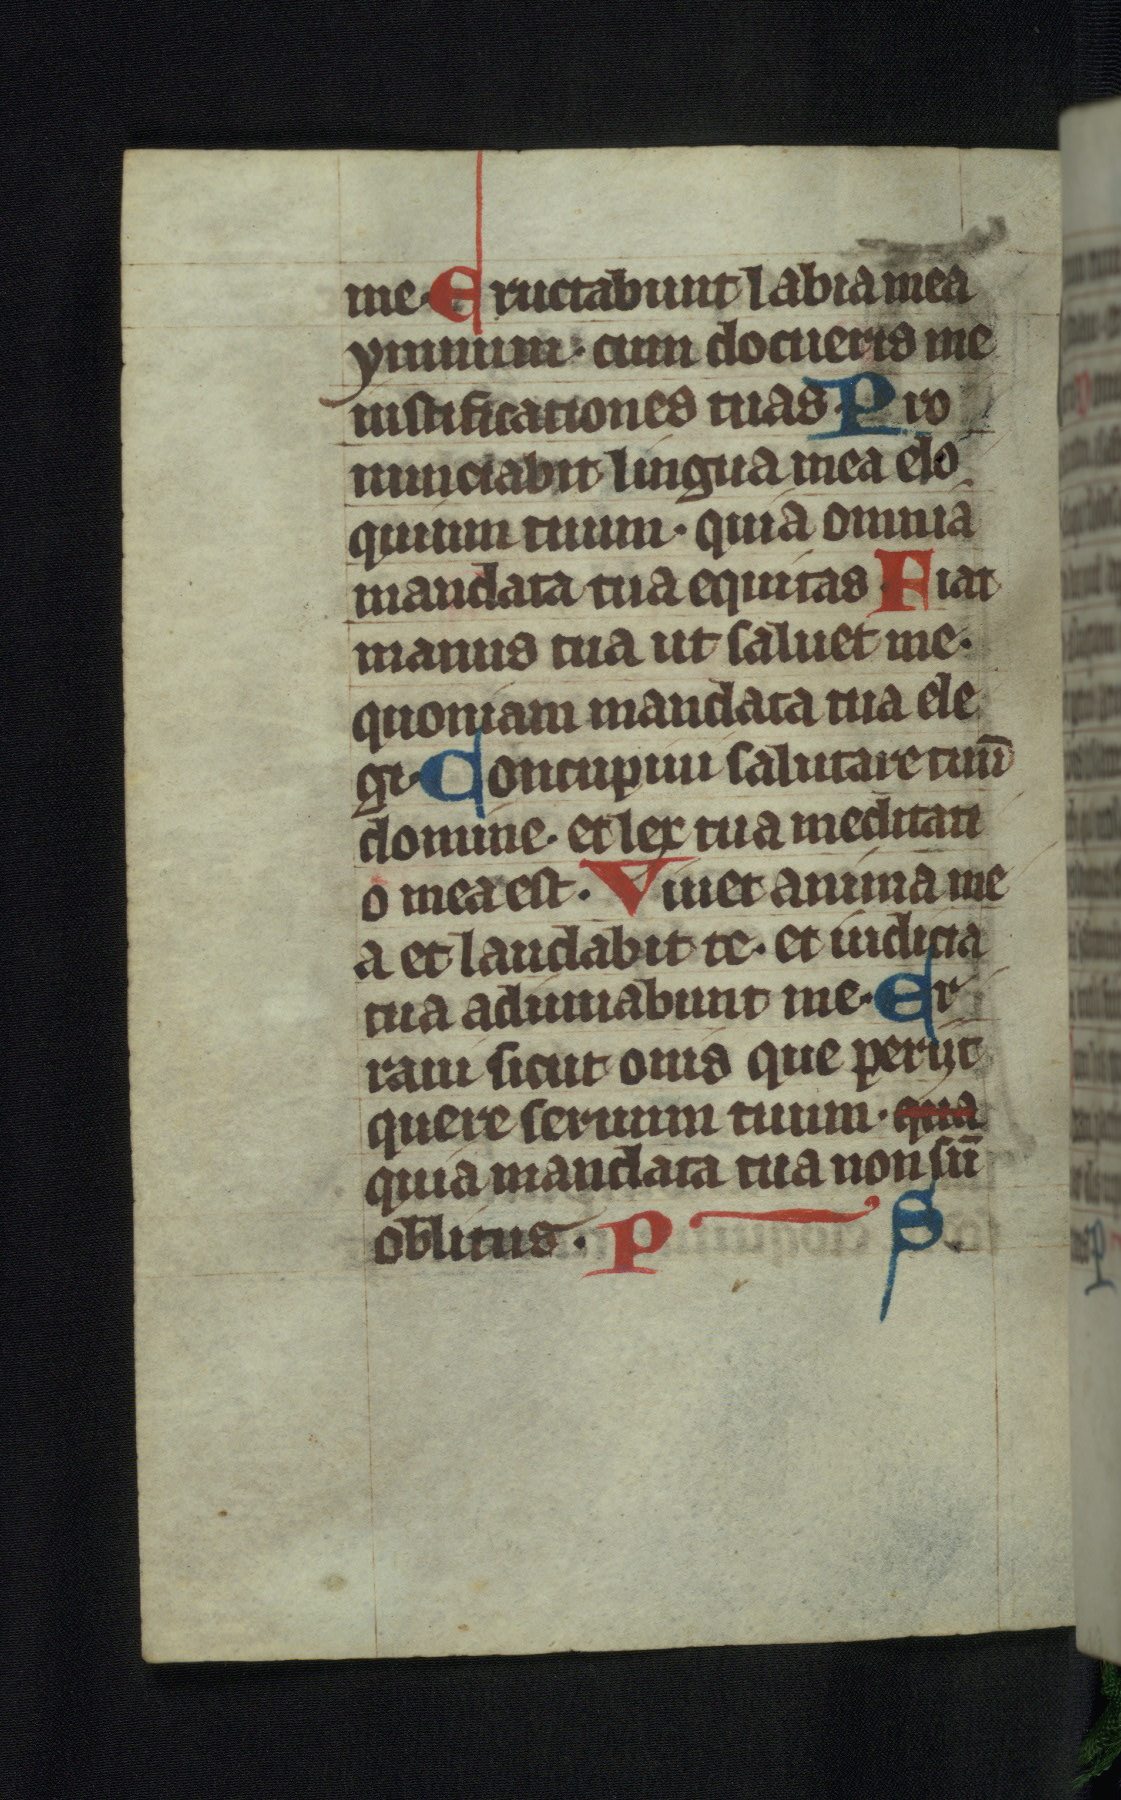 me· Eructabunt labia mea
ymnum· cum docueris me
iustificationes tuas· Pro
nunciabit lingua mea elo
quium tuum· quia omnia
mandata tua equitas· Fiat
manus tua ut saluet me·
quoniam mandata tua ele
gi· Concupiui salutare tuū
domine· et lex tua meditati
o mea est· Viuet anima me
a et laudabit te· et iudicia
tua adiuuabunt me· Er
raui sicut ouis que periit
quere seruum tuum· qua
quia mandata tua non sū
oblitus· P S